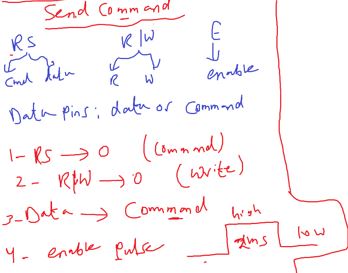 Send Command
RS R/W E
Cmd data R W enable
Data pins: data or Command
1- RS → 0 (Command)
2- R/W → 0 (Write)
3- Data → Command
high
4- enable pulse 2ms low